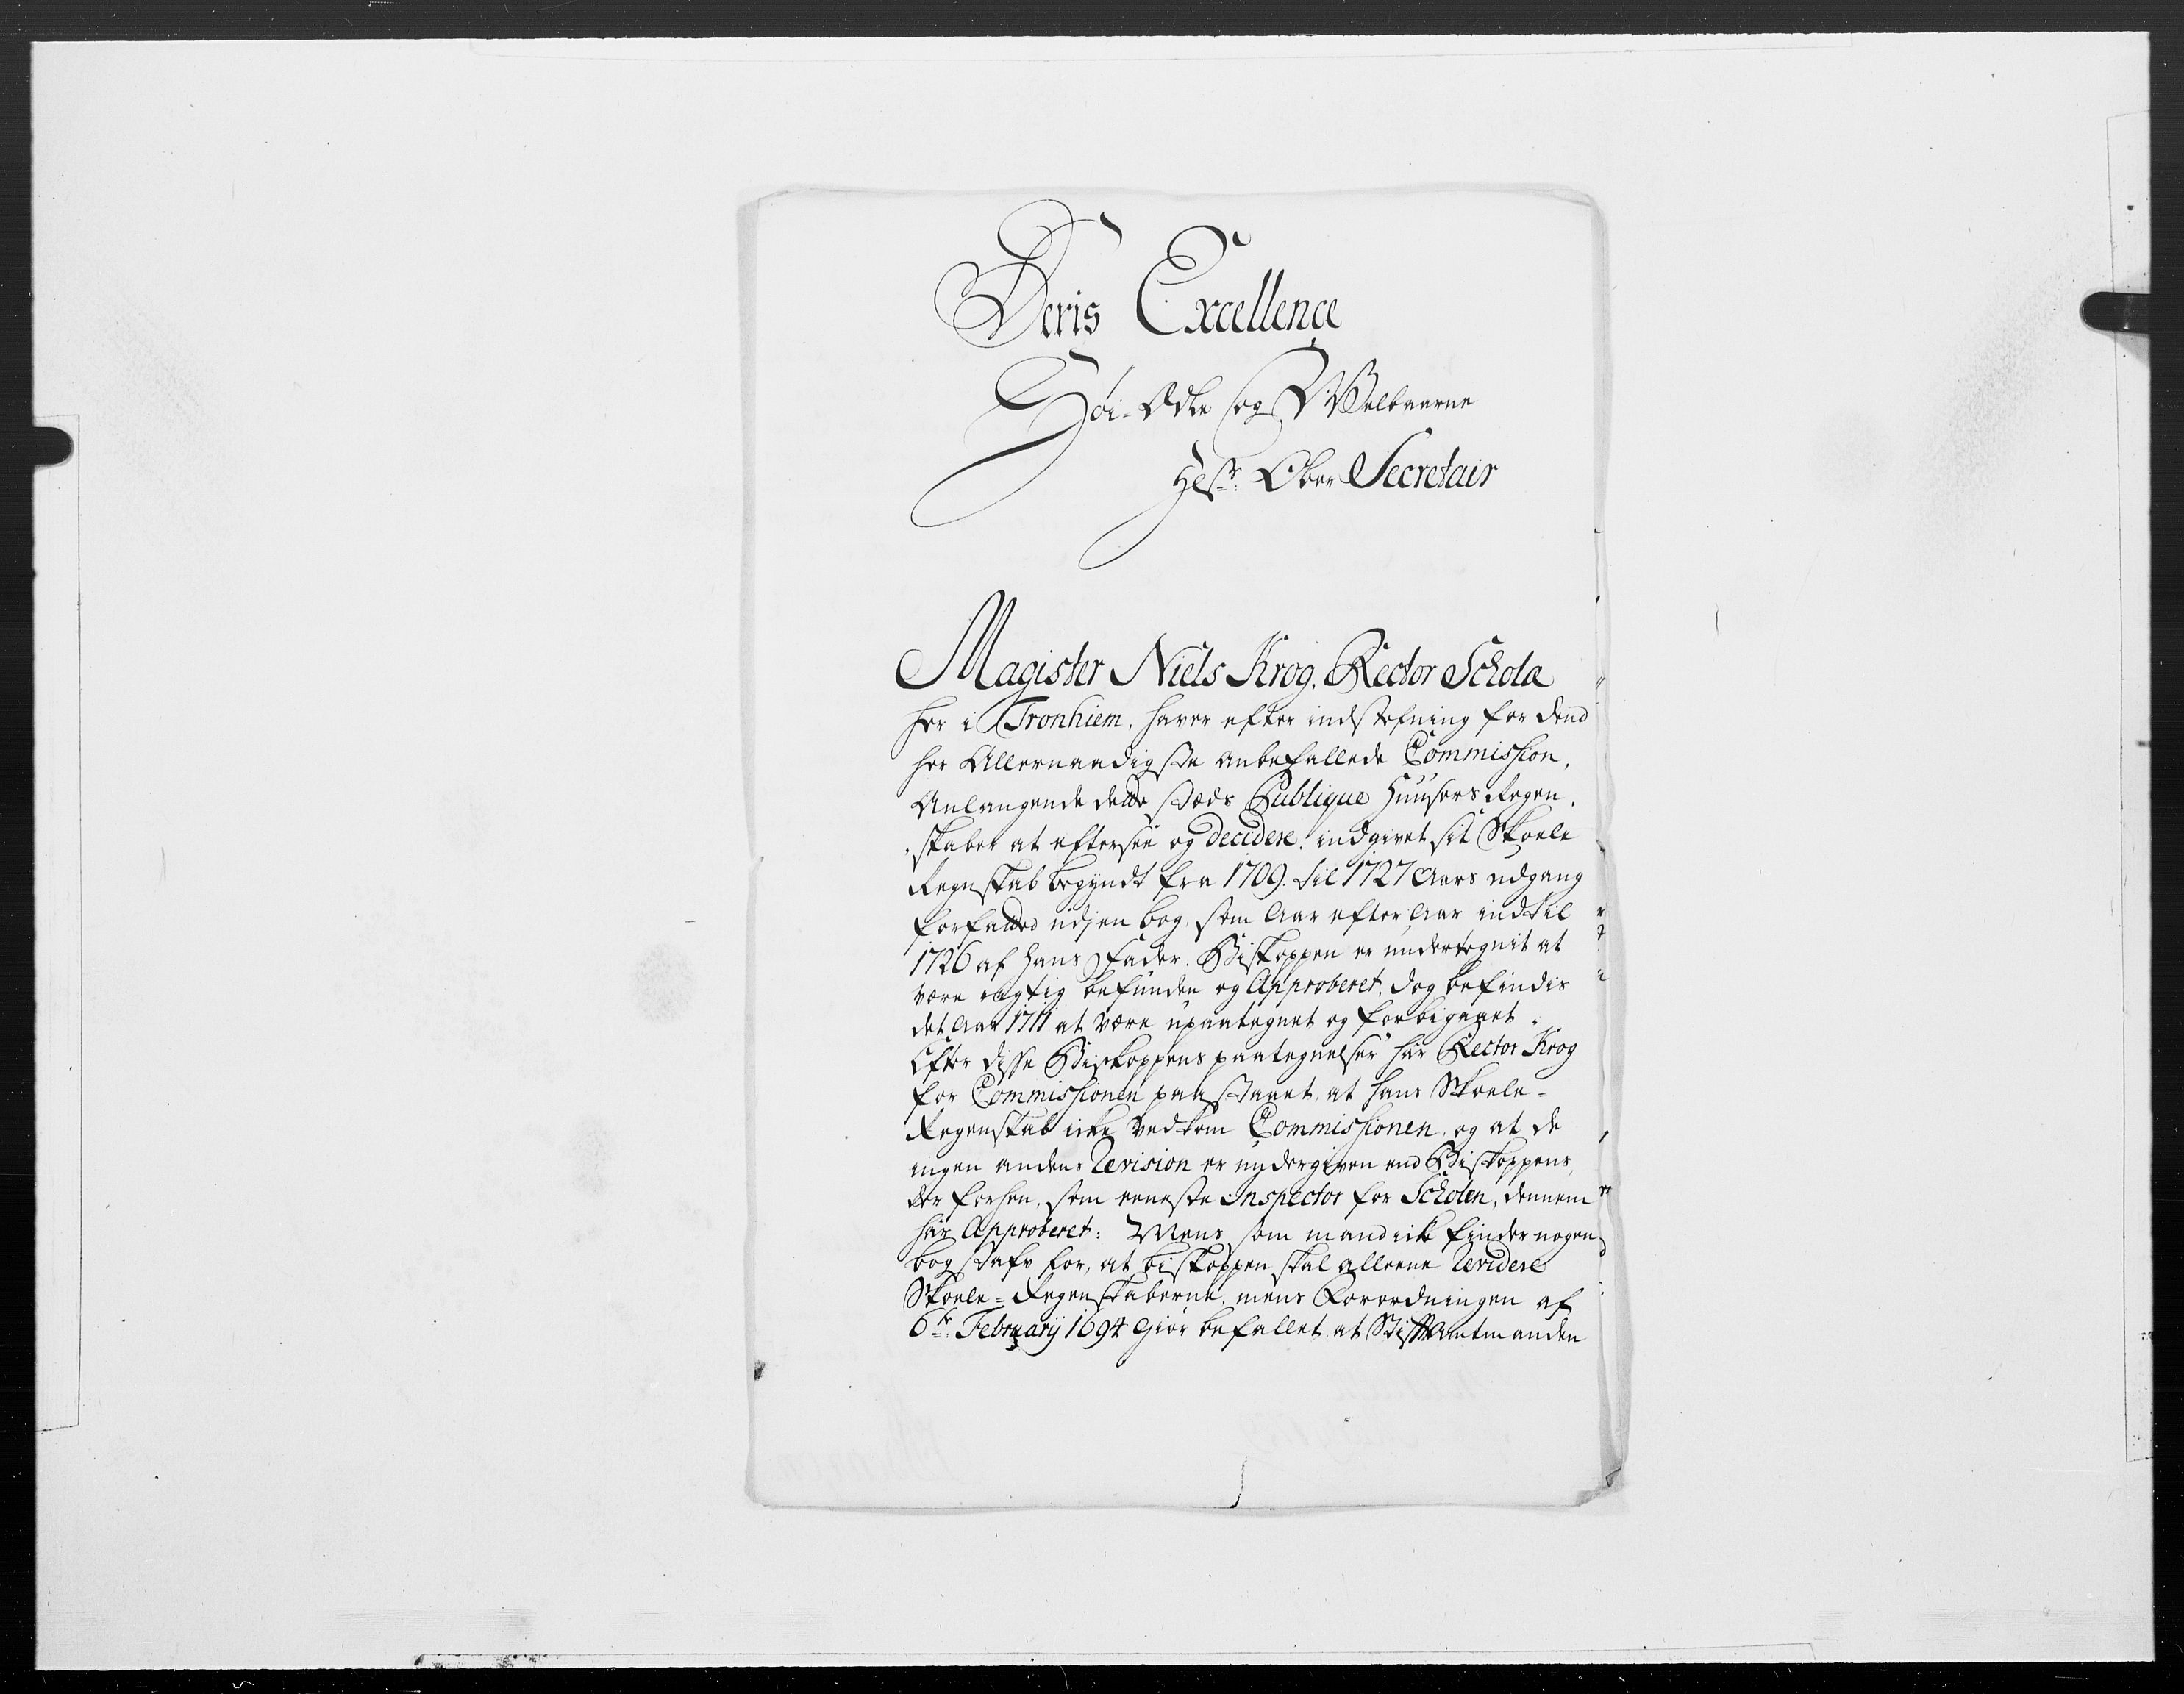 Deris Excellence
Høi-Ædle og Welbaarne
Hr: Ober Secretair
Magister Niels Krog, Rector Scholæ
her i Tronhiem, haver efter indstefning for dend
her Allernaadigste anbefallede Commission,
Anlangende dette stæds Publique Huusers Regen-
skaber at eftersee og decidere, indgivet sit Skoele
Regnskab begyndt fra 1709. til 1727 Aars udgang
forfatted udj en bog, som Aar efter Aar indtil
1726 af hans Fader, Biskoppen er undertegnit at
være rigtig befunden og Approberet, dog befindis
det Aar 1711 at være upaategnet og forbigaaet.
Efter disse Biskoppens paategnelser har Rector Krog
for Commissionen paastaaet, at hans Skoele-
Regenskab icke vedkom Commissionen, og at de
ingen anden Revision er undergiven end Biskoppens,
der forhen, som eeneste Inspector for Scholen, dennem
har Approberet: Mens som mand icke finder nogen
bogstafv for, at biskoppen skal alleene Revidere
Skoele-Regenskaberne, mens Forordningen af
6te Februarij 1694 giør befallet at Stiftamtmanden